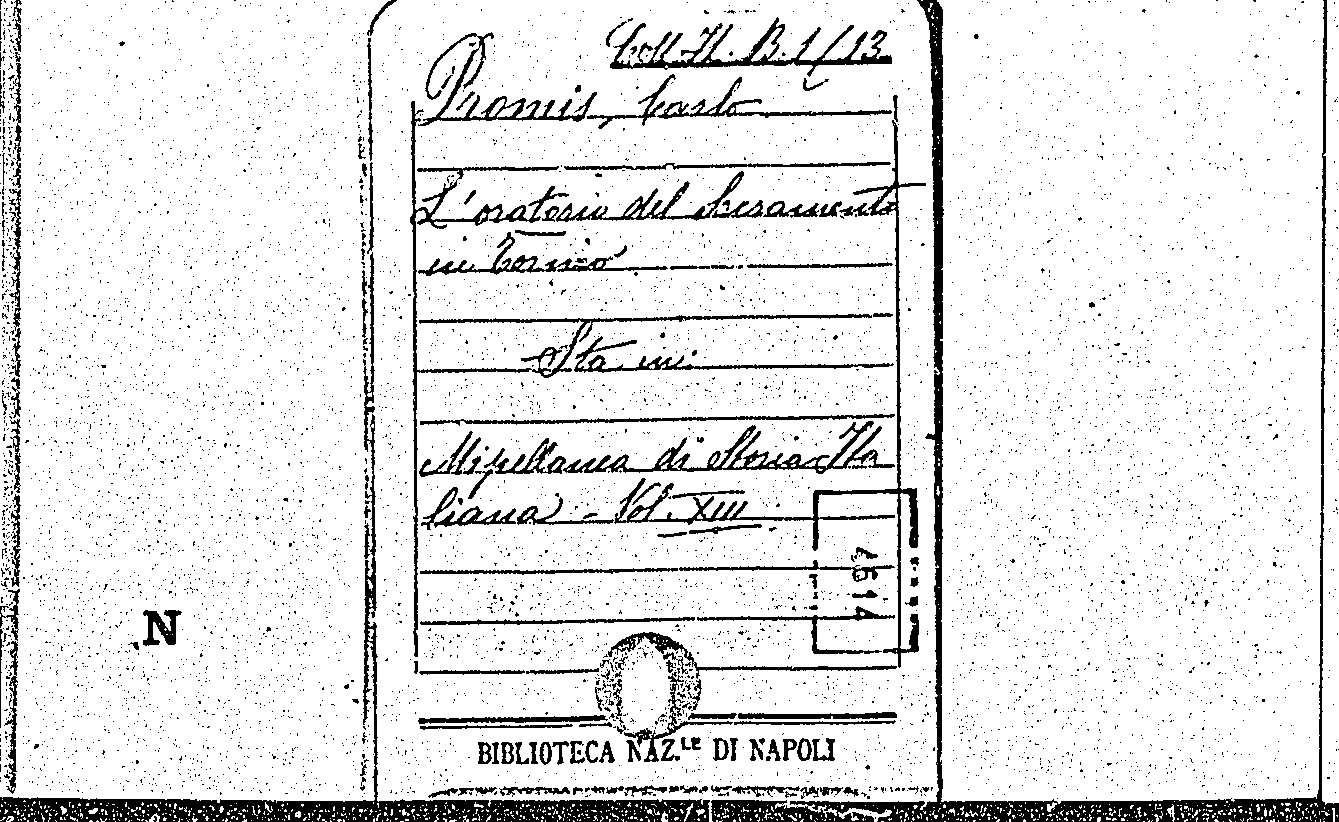 Coll. It. B. 1/13.
Promis, Carlo
L'oratorio del Sacramento
in Torino
Sta in:
Miscellanea di Storia Ita
liana - Vol. XIII
4614
N
BIBLIOTECA NAZ.LE DI NAPOLI